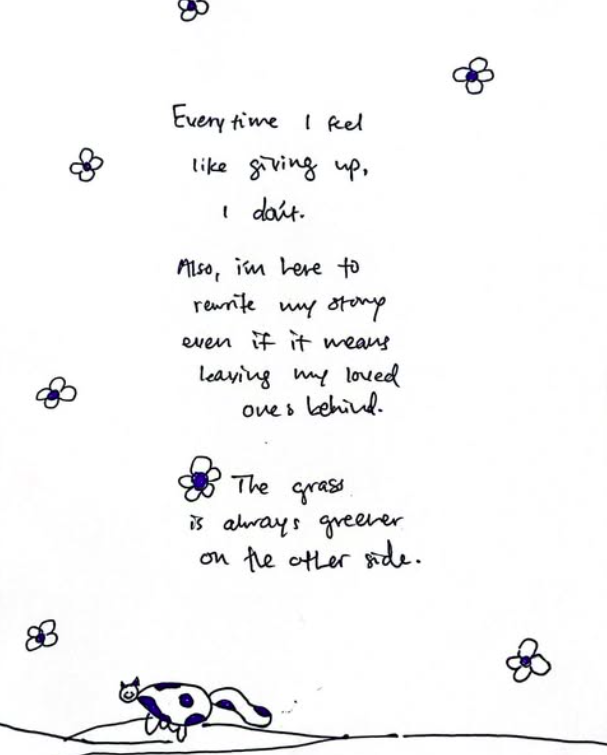 Everytime I feel
like giving up,
I don't.
Also, i'm here to
rewrite my story
even if it means
leaving my loved
ones behind.
The grass
is always greener
on the other side.